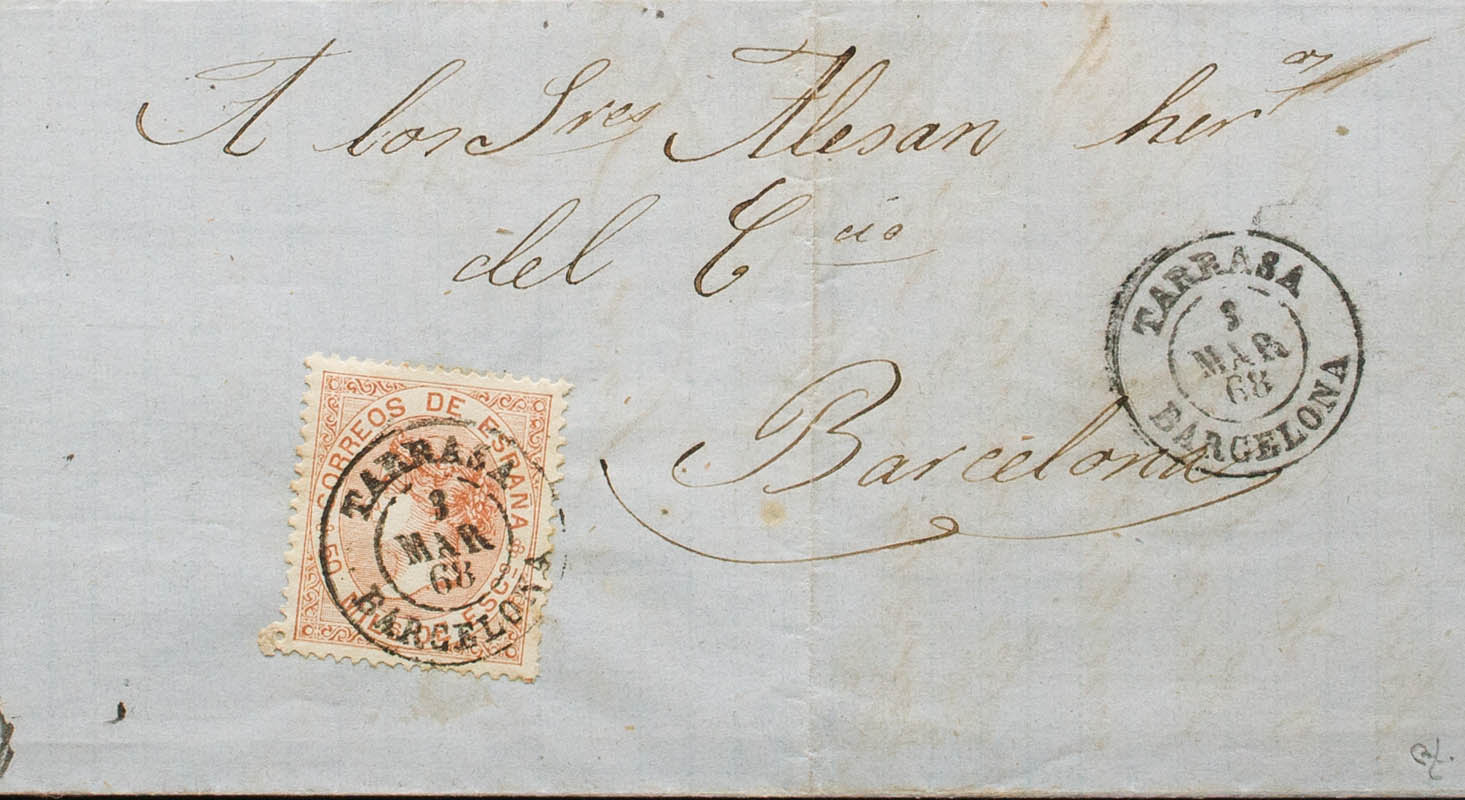 A los Sres Alesan herms
del Ccio
Barcelona
TARRASA
3
MAR
68
BARCELONA
CORREOS DE ESPAÑA
50 MILS DE ESCO
TARRASA
3
MAR
68
BARCELONA